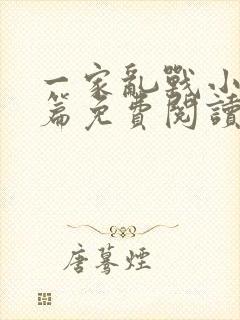 一家亂戰小
篇免費閱讀
唐驀煙